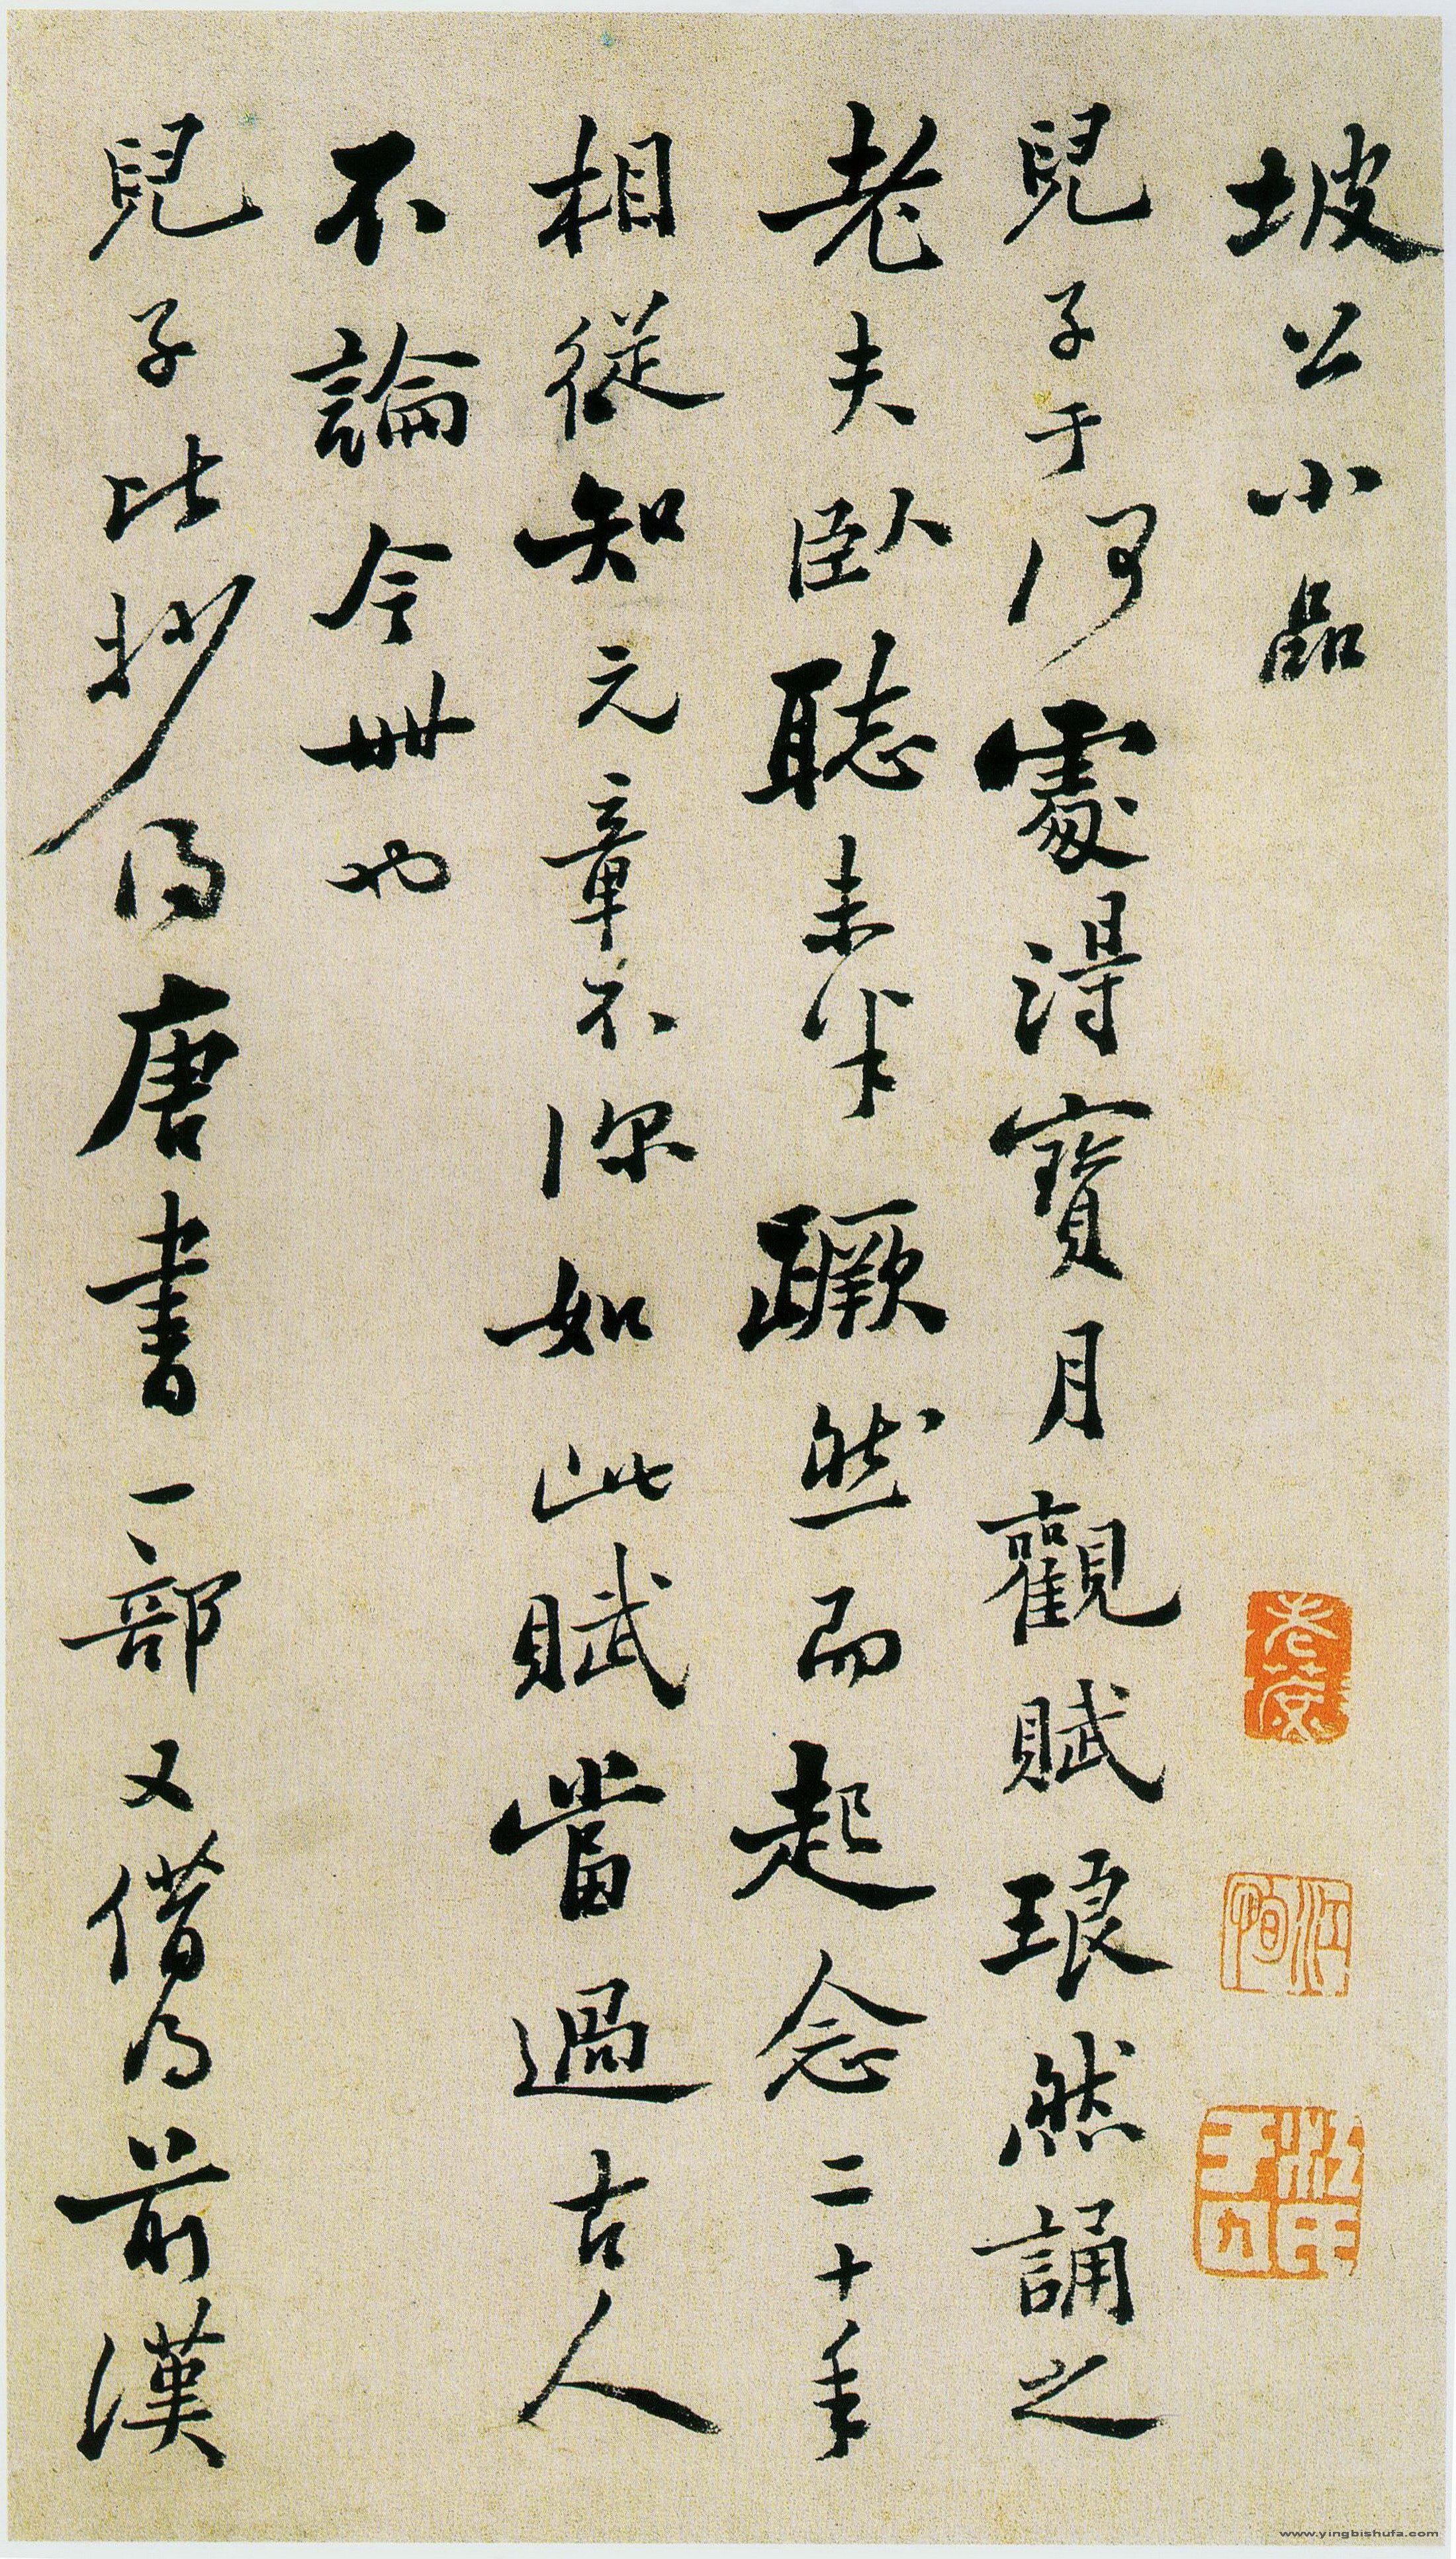 坡公小品
兒子于何處得寶月觀賦琅然誦之
老夫臥聽未半蹶然而起念二十年
相從知元章不深如此賦當過古人
不論今世也
兒子比抄得唐書一部又借得前漢
www.yingbishufa.com